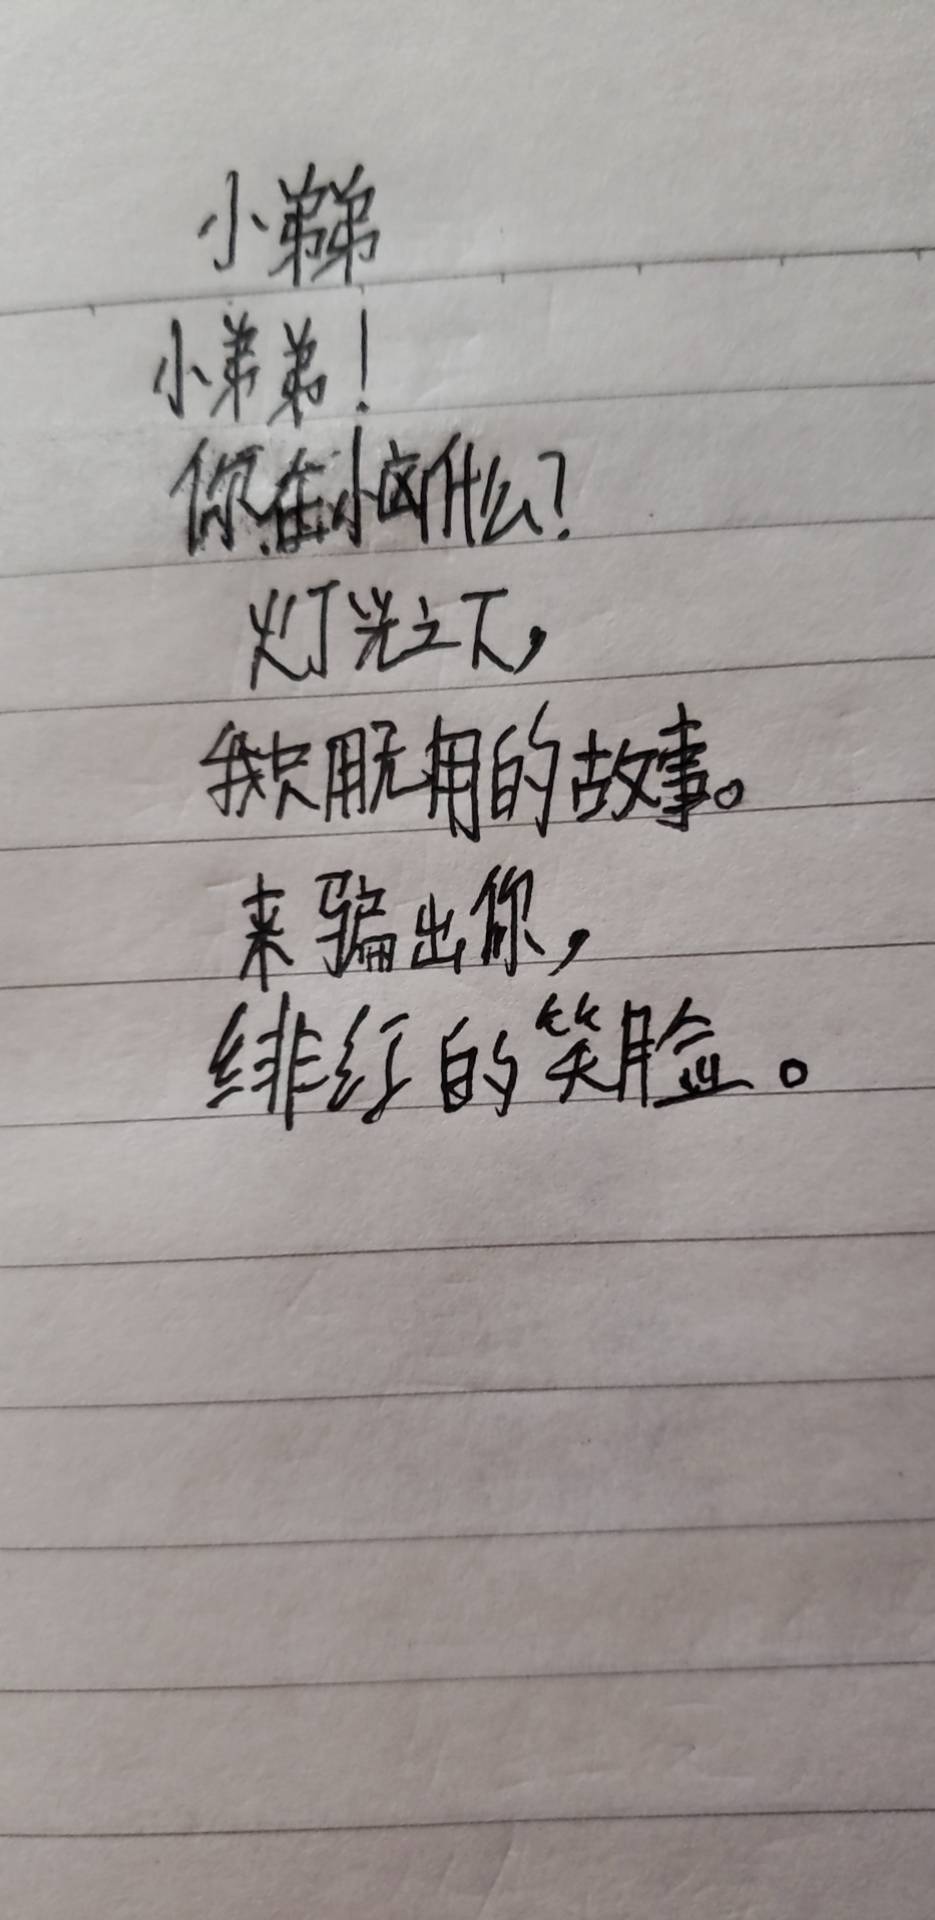 小弟弟
小弟弟！
你在小区听什么？
灯光之下，
我只用无用的故事。
来骗出你，
绯红的笑脸。